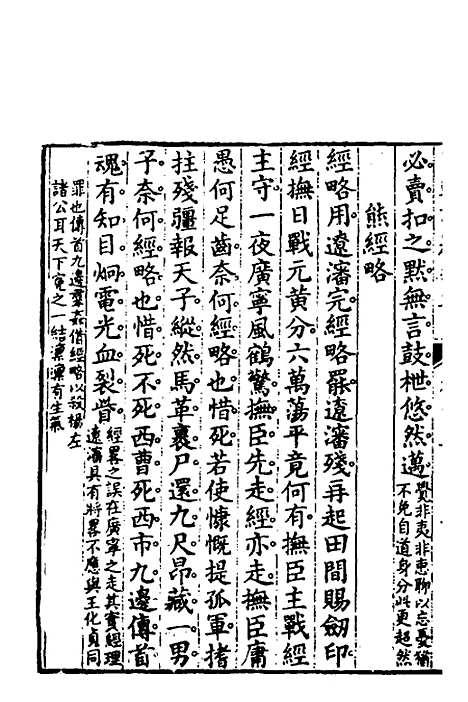 必賣扣之默無言鼓枻悠然邁覺非夷非惠聊以忘憂猶
不免自道身分此更超然
熊經略
經略用遼瀋完經略罷遼瀋殘再起田間賜劒印
經撫日戰元黃分六萬蕩平竟何有撫臣主戰經
主守一夜廣寧風鶴驚撫臣先走經亦走撫臣庸
愚何足齒奈何經略也惜死若使慷慨提孤軍撐
拄殘疆報天子縱然馬革裹尸還九尺昂藏一男
子奈何經略也惜死不死西曹死西市九邊傳首
魂有知目炯電光血裂眥經畧之誤在廣寧之走其實經理
遼瀋具有將畧不應與王化貞同
罪也傳首九邊羣姦借經略以殺楊左
諸公耳天下寃之一結凛凛有生氣